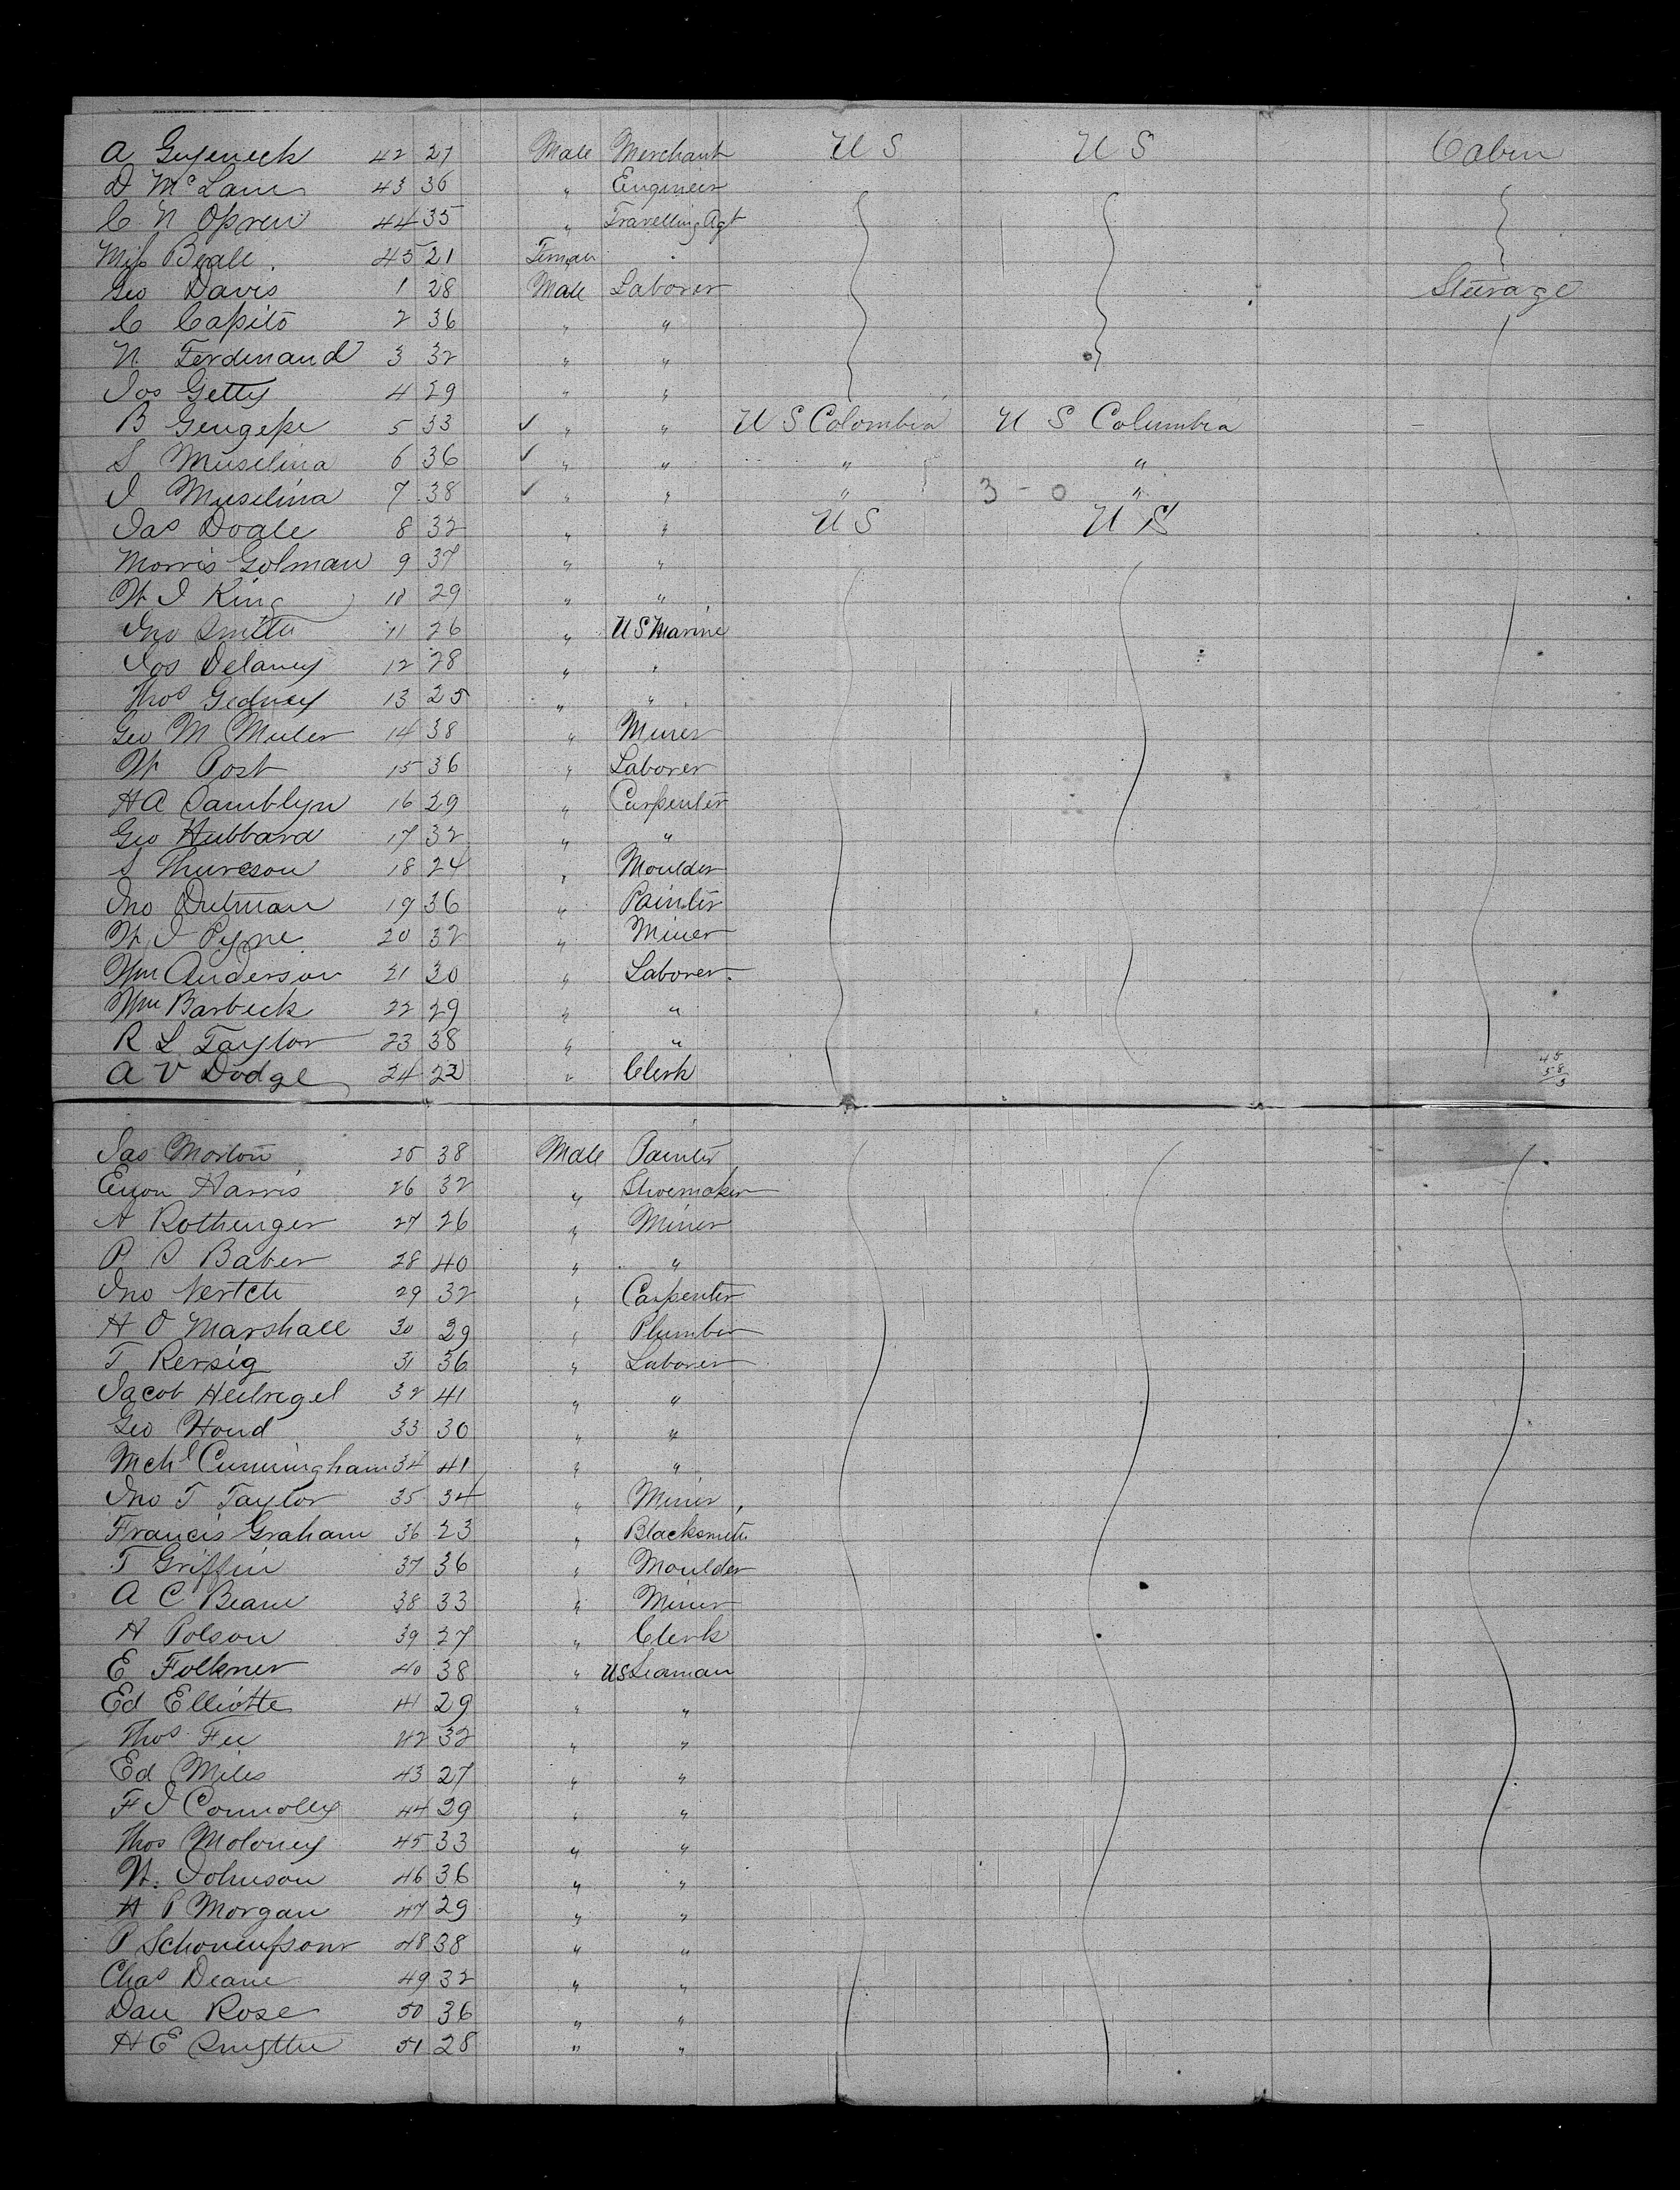 A Guyeneck 42 27 Male Merchant U S U S Cabin
D McLain 43 36 " Engineer
C N Opren 44 35 " Travelling Agt
Miss Beale 45 21 Female "
Geo Davis 1 28 Male Laborer Steerage
C Capito 2 36 " "
N. Ferdinand 3 32 " "
Jos Getty 4 29 " "
B 5 33 ✓ " " U S Colombia U S Columbia
S Muselina 6 36 ✓ " " " "
J Muselina 7 38 ✓ " " " 3 - 0 "
Jas Doale 8 32 " " U S U S
Morris Golman 9 37 " "
W J King 10 29 " "
Jno Smith 11 26 " U S Marine
Jos Delaney 12 28 " "
Thos Gedney 13 25 " "
Geo M Muler 14 38 " Miner
W Post 15 36 " Laborer
H A Damblyn 16 29 " Carpenter
Geo Hubbard 17 32 " "
S Thureson 18 24 " Moulder
Jno Dutman 19 36 " Painter
W J Pyne 20 32 " Miner
Wm Anderson 21 30 " Laborer.
Wm Barbeck 22 29 " "
R L Taylor 23 38 " "
A V Dodge 24 22 " Clerk
Jas Morton 25 38 Male Painter
Harris 26 32 " Shoemaker
A Rothenger 27 26 " Miner
P S Baber 28 40 " "
Jno Nertch 29 32 " Carpenter
H O Marshall 30 29 " Plumber
T Rersig 31 36 " Laborer
Jacob Heilregel 32 41 " "
Geo Hond 33 30 " "
Mchl Cunningham 34 41 " "
Jno T Taylor 35 34 " Miner
Francis Graham 36 23 " Blacksmith
T Griffin 37 36 " Moulder
A C Beane 38 33 " Miner
H Polson 39 27 " Clerk
E Folkner 40 38 " US Seaman
Ed Elliotte 41 29 " "
Thos Fee 42 32 " "
Ed Miles 43 27 " "
F J Connolly 44 29 " "
Thos Moloney 45 33 " "
W. Johnson 46 36 " "
H P Morgan 47 29 " "
P 48 38 " "
Chas Deane 49 32 " "
Dan Rose 50 36 " "
H E Smythe 51 28 " "